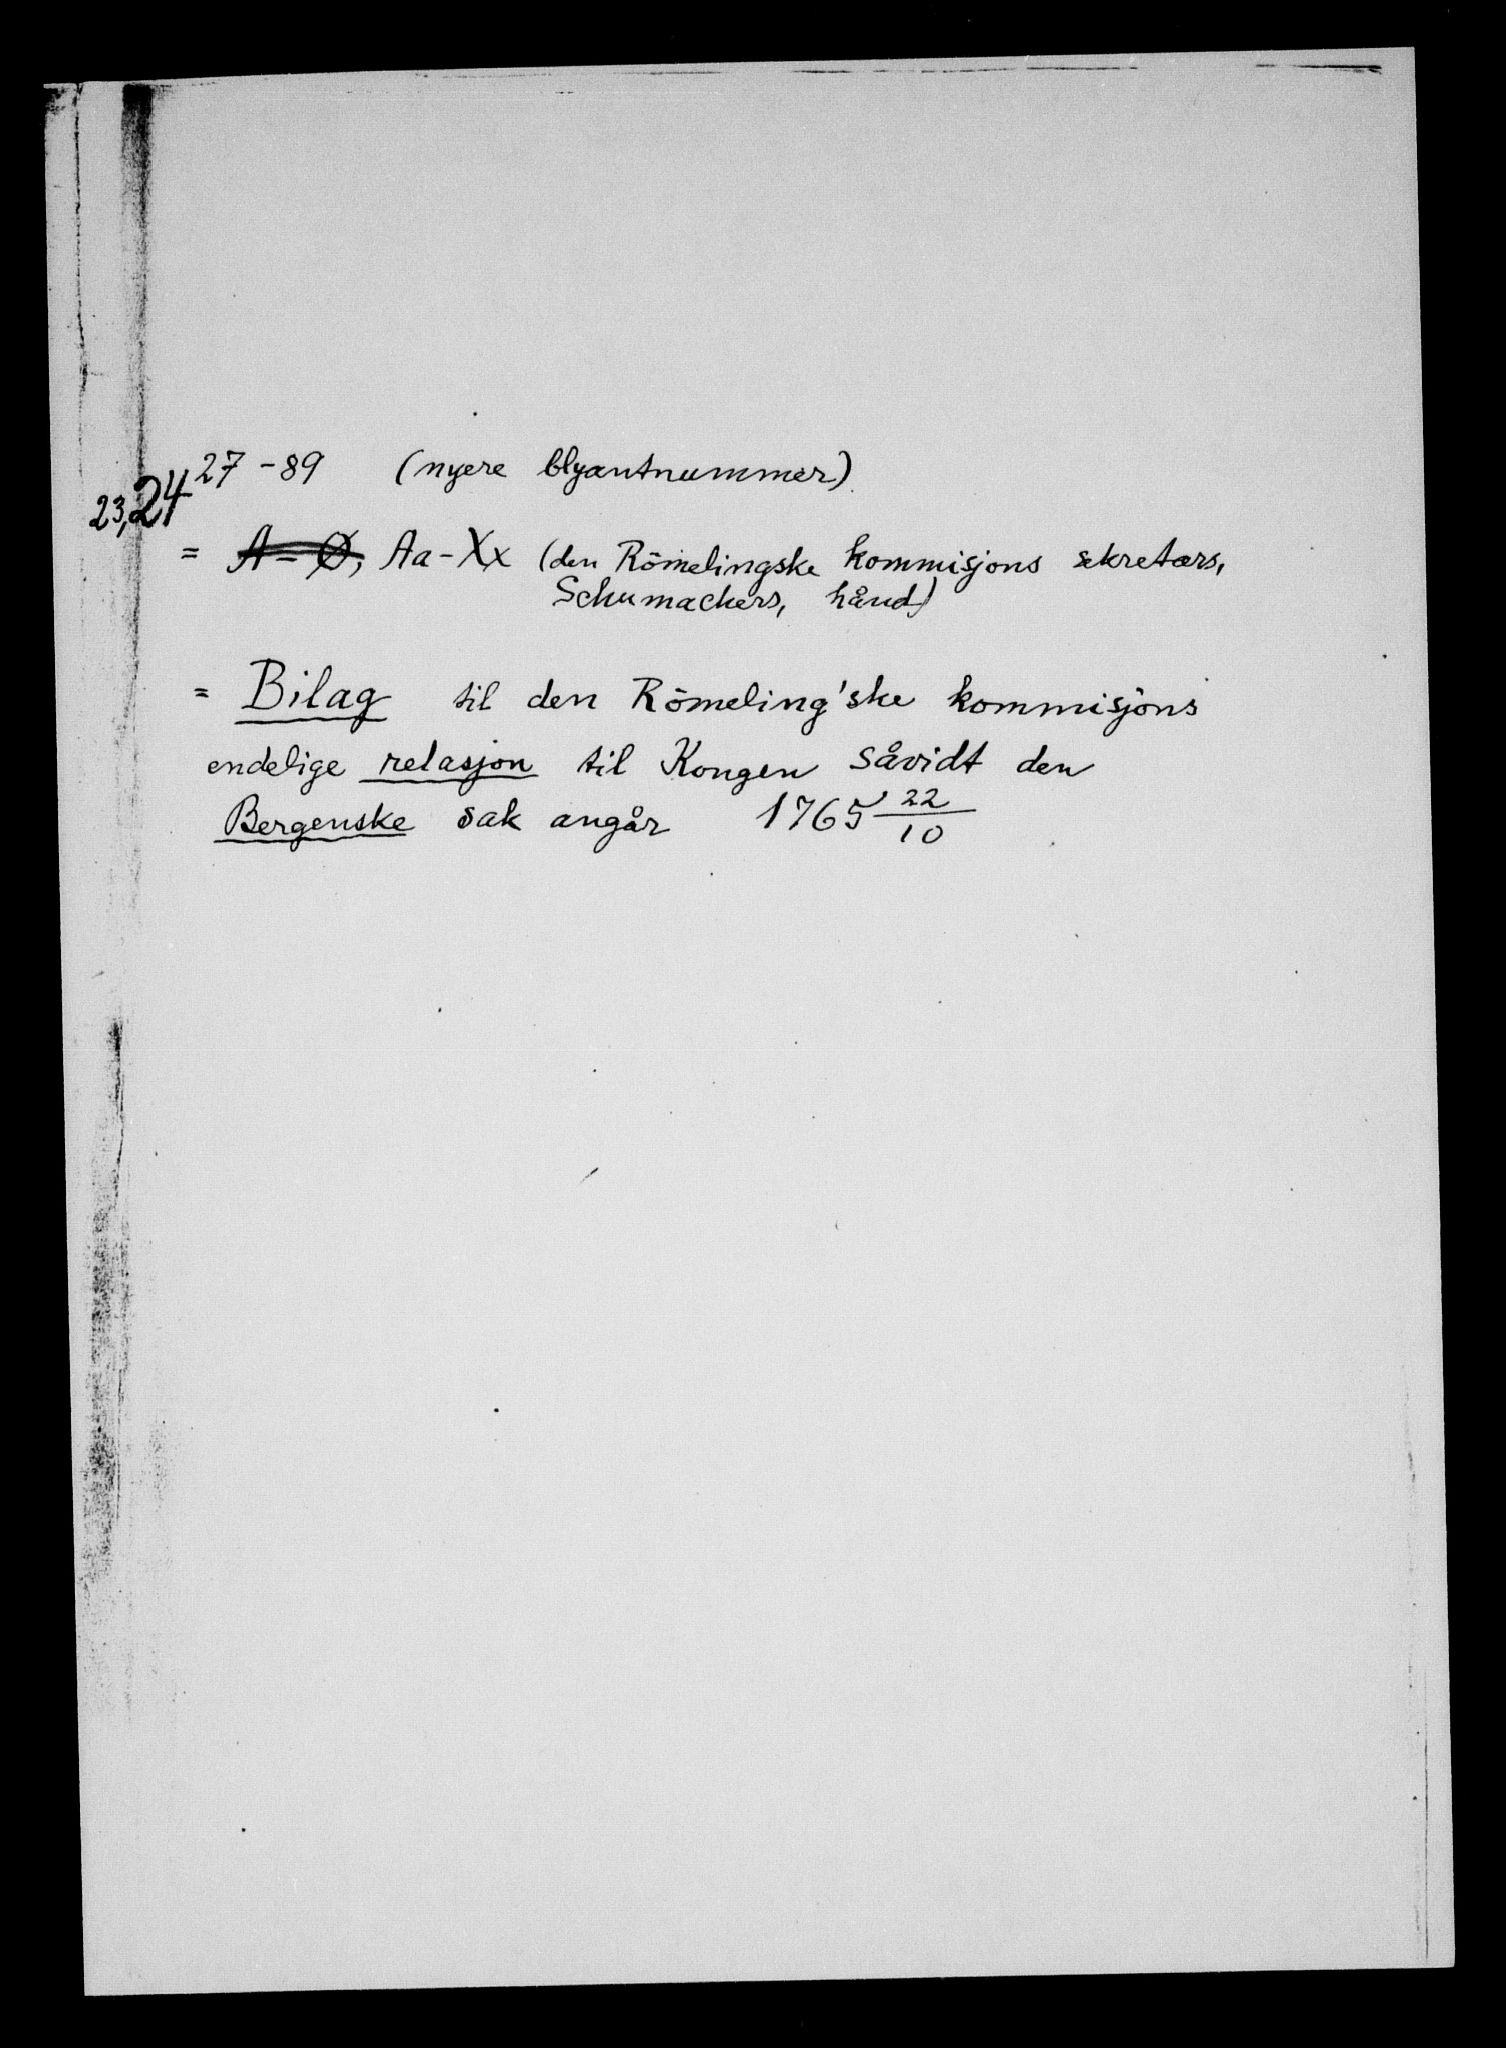 27 - 89 (nyere blyantnummer)
23, 24
= A - Ø, Aa - Xx (den Römelingske kommisjons sekretærs,
Schumachers, hånd)
= Bilag til den Römeling'ske kommisjons
endelige relasjon til Kongen såvidt den
Bergenske sak angår 1765 22/10